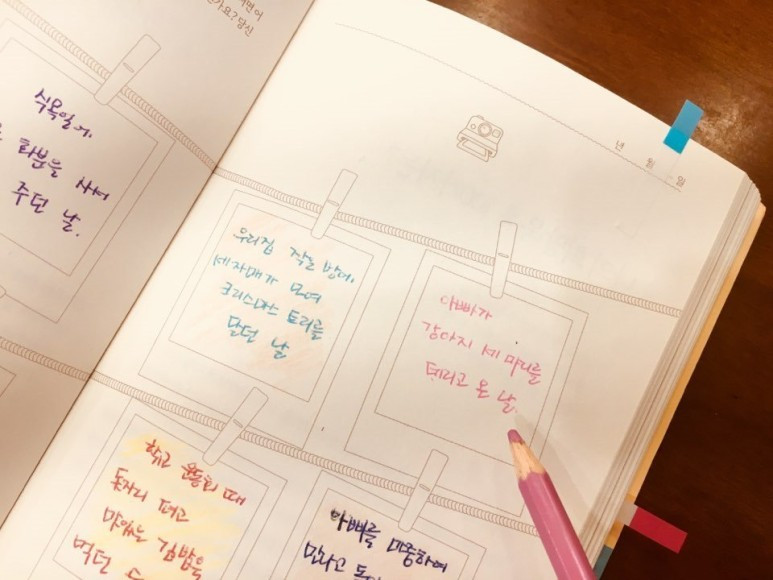 년 월 일
식목일에,
화분을 사서
주던 날.
우리집 작은 방에,
세자매가 모여
크리스마스 트리를
달던 날
아빠가
강아지 세 마리를
데리고 온 날.
학교 운동회 때
돗자리 펴고
맛있는 김밥을
먹던
아빠를 마중하여